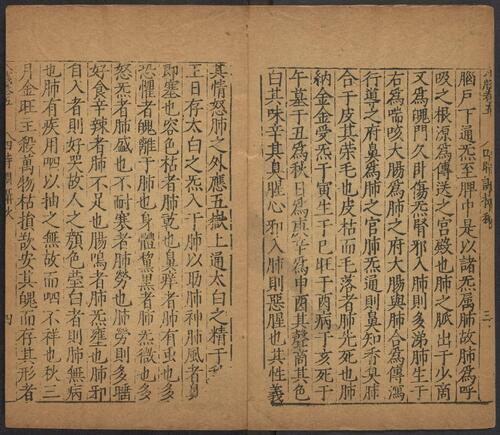 腦戶下通炁至脾中是以諸炁屬肺故肺爲呼
吸之根源爲傳送之宮殿也肺之脈出于少商
又爲魄門久卧傷炁腎邪入肺則多涕肺生于
右爲喘咳大腸爲肺之府大腸與肺合爲傳瀉
行導之府鼻爲肺之官肺炁通則鼻知香臭肺
合于皮其榮毛也皮枯而毛落者肺先死也肺
納金金受炁于寅生于巳旺于酉病于亥死于
午墓于丑爲秋日爲庚辛爲申酉其聲商其色
白其味辛其臭腥心邪入肺則惡腥也其性義
其情怒肺之外應五嶽上通太白之精于秋
王日存太白之炁入于肺以助肺神肺風者鼻
即塞也容色枯者肺乾也鼻癢者肺有虫也多
恐懼者魄離于肺也身體黧黑者肺炁微也多
怒炁者肺盛也不耐寒者肺勞也肺勞則多睡
好食辛辣者肺不足也腸鳴者肺炁壅也肺邪
自入者則好哭故人之顏色瑩白者則肺無病
也肺有疾用呬以抽之無故而呬不祥也秋三
月金旺主殺萬物枯損欲安其魄而存其形者
四